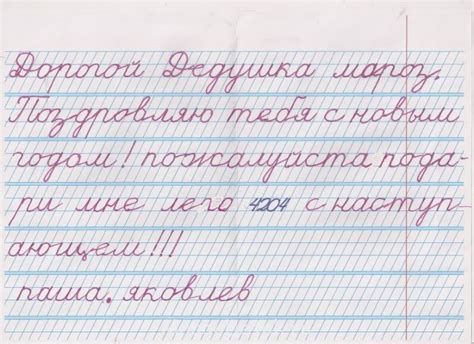 Дорогой Дедушка мароз.
Поздровляю тебя с новым
годом! пожалуйста пода-
ри мне лего 4204 с наступ-
ающем!!!
паша. яковлев